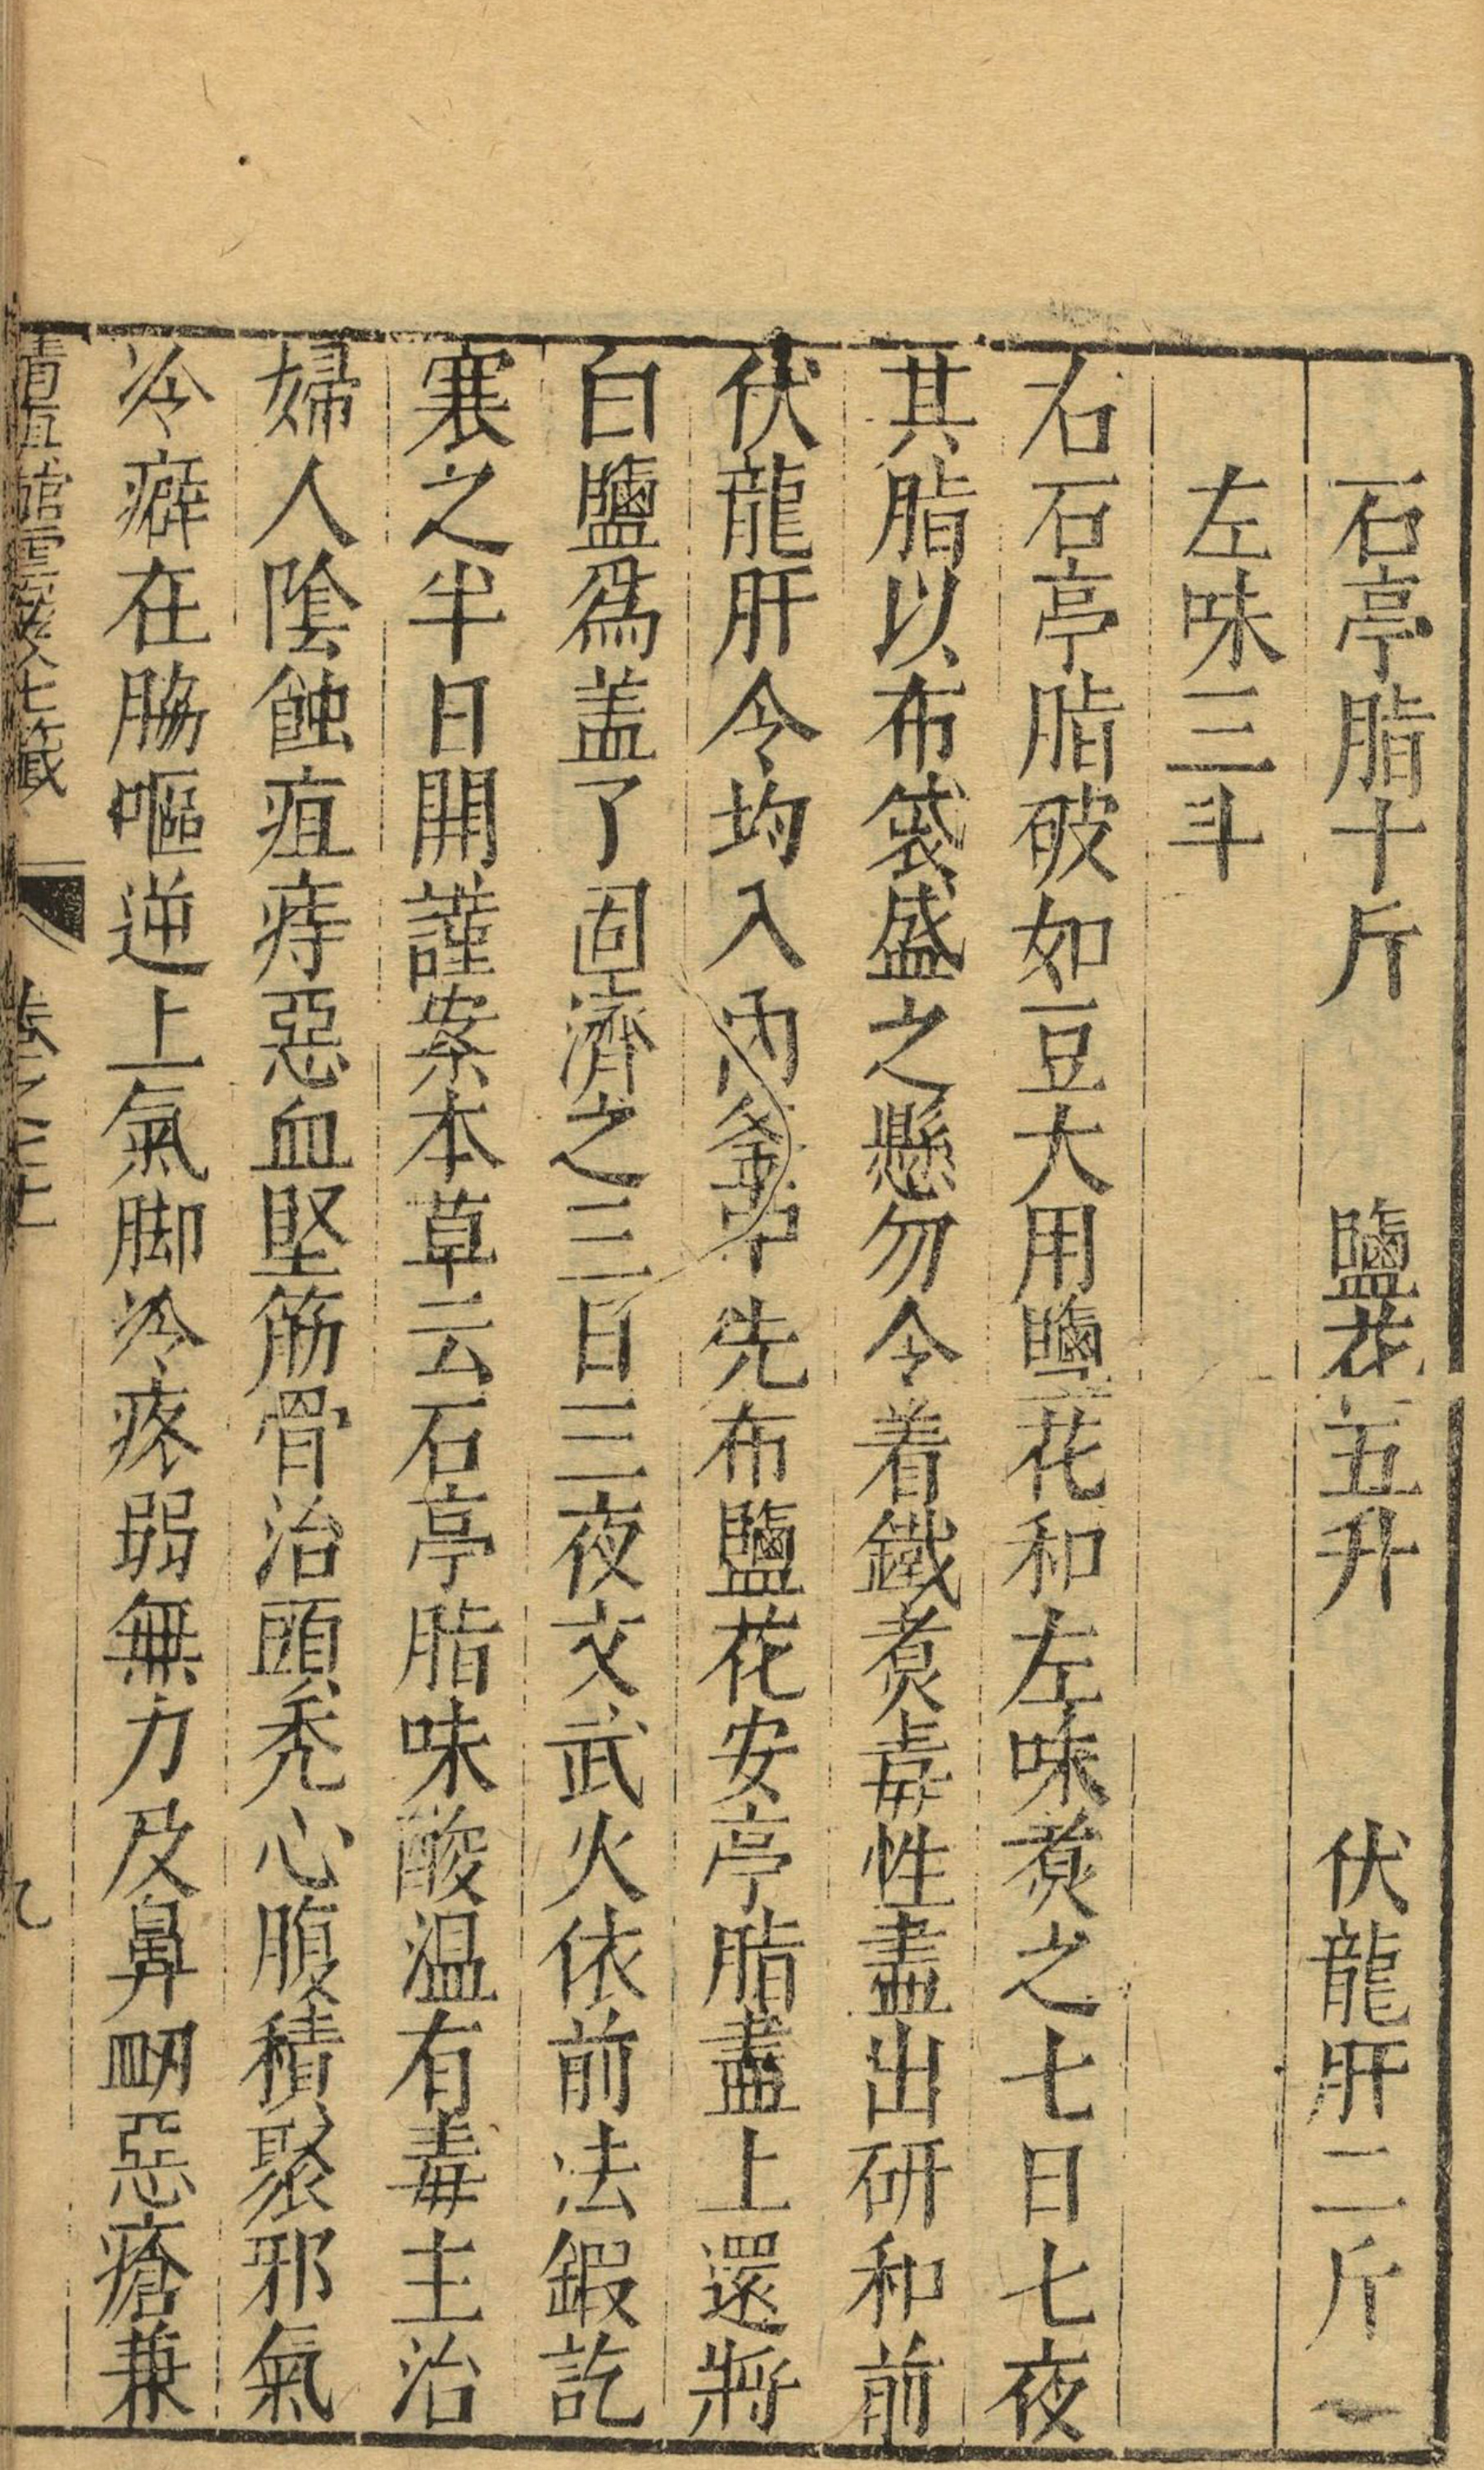 石亭脂十斤　鹽花五升　伏龍肝二斤
左味三斗
右石亭脂破如豆大用鹽花和左味煑之七日七夜
其脂以布袋盛之懸勿令着鐵煑毒性盡出研和前
伏龍肝令均入內釜中先布鹽花安亭脂盡上還將
白鹽爲盖了固濟之三日三夜文武火依前法鍜訖
寒之半日開謹案本草云石亭脂味酸温有毒主治
婦人陰蝕疽痔惡血堅筋骨治頭秃心腹積聚邪氣
冷癖在脇嘔逆上氣脚冷疼弱無力及鼻衂惡瘡兼
清真館雲笈七籤　卷之七十一　九